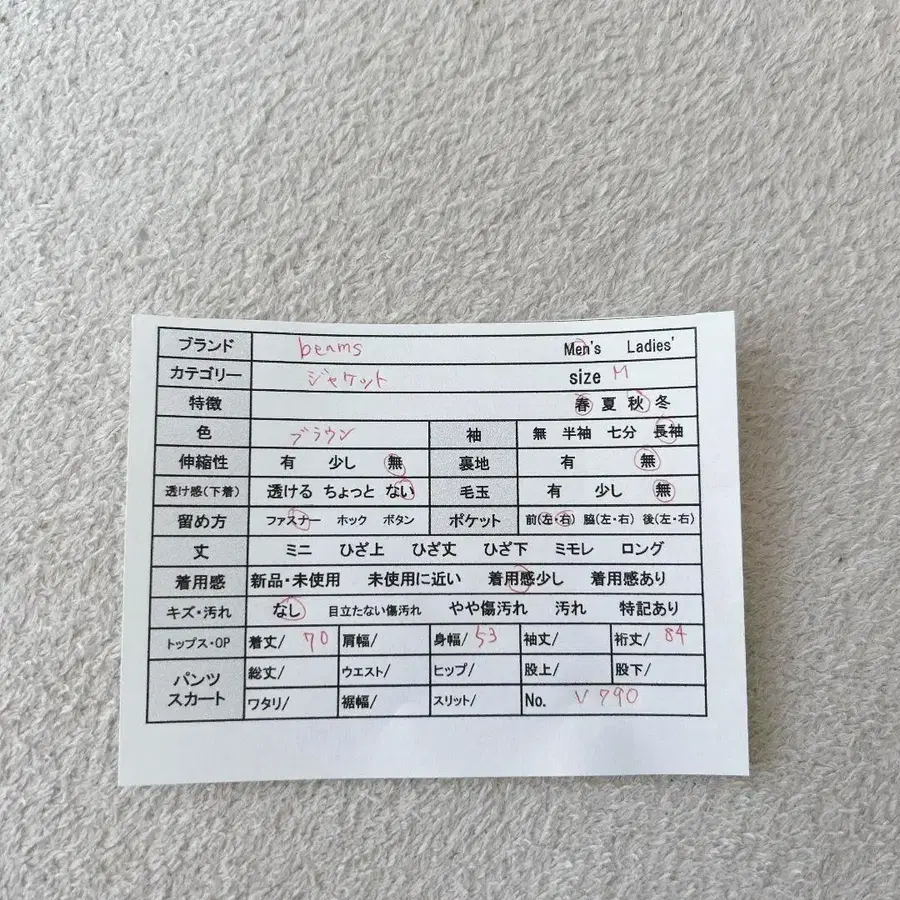 ブランド beams Men's Ladies'
カテゴリー ジャケット size M
特徴 春 夏 秋 冬
色 ブラウン 袖 無 半袖 七分 長袖
伸縮性 有 少し 無 裏地 有 無
透け感(下着) 透ける ちょっと ない 毛玉 有 少し 無
留め方 ファスナー ホック ボタン ポケット 前(左・右) 脇(左・右) 後(左・右)
丈 ミニ ひざ上 ひざ丈 ひざ下 ミモレ ロング
着用感 新品・未使用 未使用に近い 着用感少し 着用感あり
キズ・汚れ なし 目立たない傷汚れ やや傷汚れ 汚れ 特記あり
トップス・OP 着丈/ 70 肩幅/ 身幅/ 53 袖丈/ 裄丈/ 84
パンツ スカート 総丈/ ウエスト/ ヒップ/ 股上/ 股下/
ワタリ/ 裾幅/ スリット/ No. V790